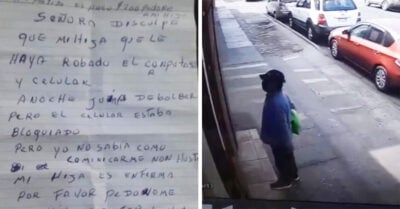 SEÑORA DISCULPE
QUE MI HIJA QUE LE
HAYA ROBADO EL COMPUTADOR
Y CELULAR
ANOCHE DEBOLBER
PERO EL CELULAR ESTABA
BLOQUIADO
PERO YO NO SABIA COMO
COMINICARME
MI HIJA ES ENFIRMA
POR FAVOR